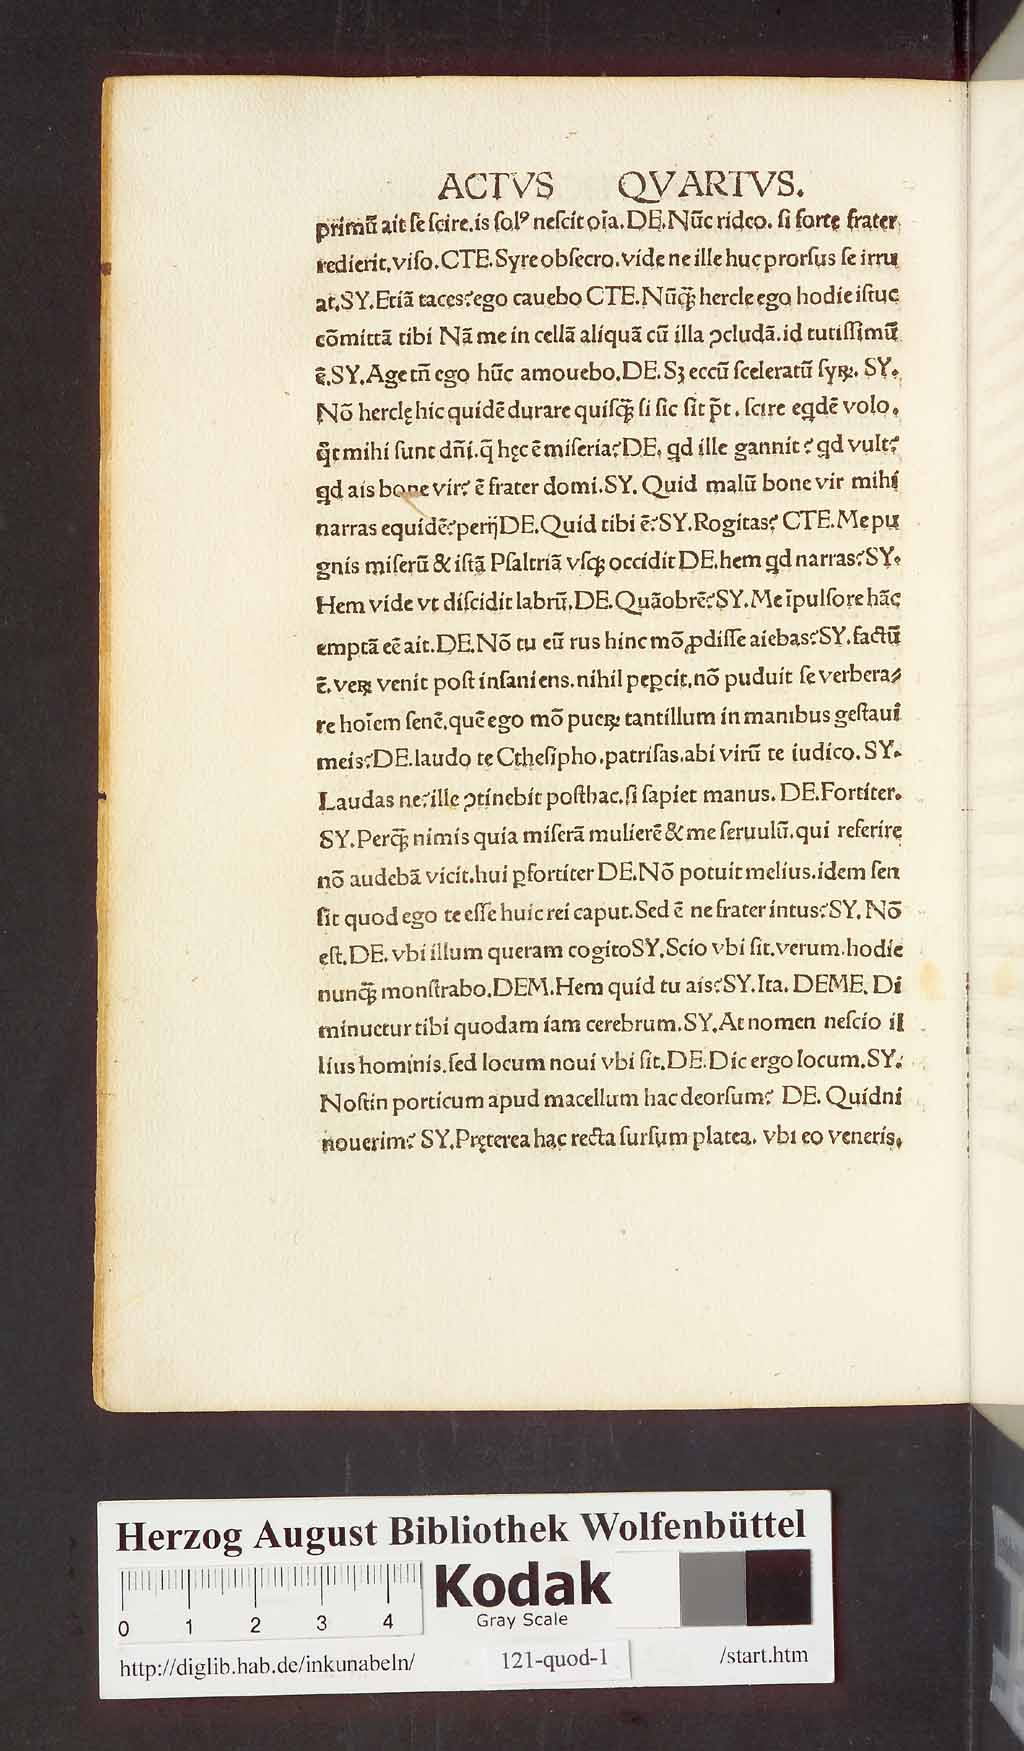 ACTVS QVARTVS.
primū ait ſe ſcire.is ſolꝰ neſcit oīa.DE.Nūc rideo. ſi forte frater
redierit.viſo.CTE.Syre obſecro.vide ne ille huc prorſus ſe irru
at.SY.Etiā taces?ego cauebo CTE.Nūꝗ̃ hercle ego hodie iſtuc
cōmittā tibi Nā me in cellā aliquā cū illa ꝯcludā.id tutiſſimū
ē.SY.Age tñ ego hūc amouebo.DE.Sꝫ eccū ſceleratū ſyꝝ. SY.
Nō hercle hic quidē durare quiſꝗ̃ ſi ſic ſit p̄t. ſcire eqdē volo.
ꝗt mihi ſunt dn̄i.q̄ hęc ē miſeria?DE. ꝗd ille gannit? ꝗd vult?
ꝗd ais bone vir? ē frater domi.SY. Quid malū bone vir mihi
narras equidē?perij DE.Quid tibi ē?SY.Rogitas? CTE.Me pu
gnis miſerū & iſtā Pſaltriā vſꝗ occidit DE.hem ꝗd narras?SY.
Hem vide vt diſcidit labrū.DE.Quāobrē?SY.Me īpulſore hāc
emptā eē ait.DE.Nō tu eū rus hinc mō ꝓdiſſe aiebas?SY.factū
ē.veꝝ venit poſt inſaniens.nihil peꝑcit.nō puduit ſe verbera⸗
re hoīem ſenē.quē ego mō pueꝝ tantillum in manibus geſtaui
meis?DE.laudo te Ctheſipho.patriſas.abi virū te iudico.SY.
Laudas ne?ille ꝯtinebit poſthac.ſi ſapiet manus. DE.Fortiter.
SY.Perꝗ̃ nimis quia miſerā mulierē & me ſeruulū.qui referire
nō audebā vicit.hui ꝑfortiter DE.Nō potuit melius.idem ſen
ſit quod ego te eſſe huic rei caput.Sed ē ne frater intus?SY. Nō
eſt.DE. vbi illum queram cogito SY.Scio vbi ſit.verum.hodie
nunꝗ̃ monſtrabo.DEM.Hem quid tu ais?SY.Ita. DEME. Di
minuetur tibi quodam iam cerebrum.SY.At nomen neſcio il
lius hominis.ſed locum noui vbi ſit.DE.Dic ergo locum.SY.
Noſtin porticum apud macellum hac deorſum? DE. Quidni
nouerim? SY.Pręterea hac recta ſurſum platea. vbi eo veneris.
Herzog August Bibliothek Wolfenbüttel
Kodak
Gray Scale
0 1 2 3 4
http://diglib.hab.de/inkunabeln/ 121-quod-1 /start.htm